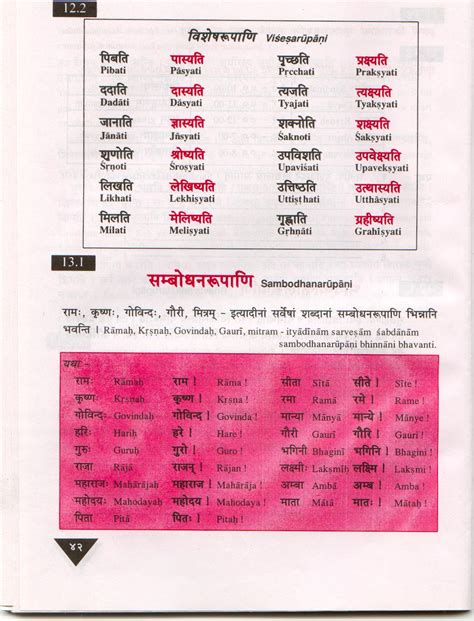 12.2
विशेषरूपाणि Viśeṣarūpāṇi
पिबति पास्यति पृच्छति प्रक्ष्यति
Pibati Pāsyati Pṛcchati Prakṣyati
ददाति दास्यति त्यजति त्यक्ष्यति
Dadāti Dāsyati Tyajati Tyakṣyati
जानाति ज्ञास्यति शक्नोति शक्ष्यति
Jānāti Jñsyati Śaknoti Śakṣyati
शृणोति श्रोष्यति उपविशति उपवेक्ष्यति
Śṛnoti Śroṣyati Upaviśati Upavekṣyati
लिखति लेखिष्यति उत्तिष्ठति उत्थास्यति
Likhati Lekhiṣyati Uttiṣṭhati Utthāsyati
मिलति मेलिष्यति गृह्णाति ग्रहीष्यति
Milati Meliṣyati Gṛhṇāti Grahīṣyati
13.1
सम्बोधनरूपाणि Sambodhanarūpāṇi
रामः, कृष्णः, गोविन्दः, गौरी, मित्रम् - इत्यादीनां सर्वेषां शब्दानां सम्बोधनरूपाणि भिन्नानि
भवन्ति । Rāmaḥ, Kṛṣṇaḥ, Govindaḥ, Gaurī, mitram - ityādīnām sarveṣām śabdānām
sambodhanarūpāṇi bhinnāni bhavanti.
यथा -
रामः Rāmaḥ राम ! Rāma ! सीता Sītā सीते ! Sīte !
कृष्णः Kṛṣṇaḥ कृष्ण ! Kṛṣṇa ! रमा Ramā रमे ! Rame !
गोविन्दः Govindaḥ गोविन्द ! Govinda ! मान्या Mānyā मान्ये ! Mānye !
हरिः Hariḥ हरे ! Hare ! गौरी Gaurī गौरि ! Gauri !
गुरुः Guruḥ गुरो ! Guro ! भगिनी Bhaginī भगिनि ! Bhagini !
राजा Rājā राजन् ! Rājan ! लक्ष्मीः Lakṣmīḥ लक्ष्मि ! Lakṣmi !
महाराजः Mahārājaḥ महाराज ! Mahārāja ! अम्बा Ambā अम्ब ! Amba !
महोदयः Mahodayaḥ महोदय ! Mahodaya ! माता Mātā मातः ! Mātaḥ !
पिता Pitā पितः ! Pitaḥ !
४२